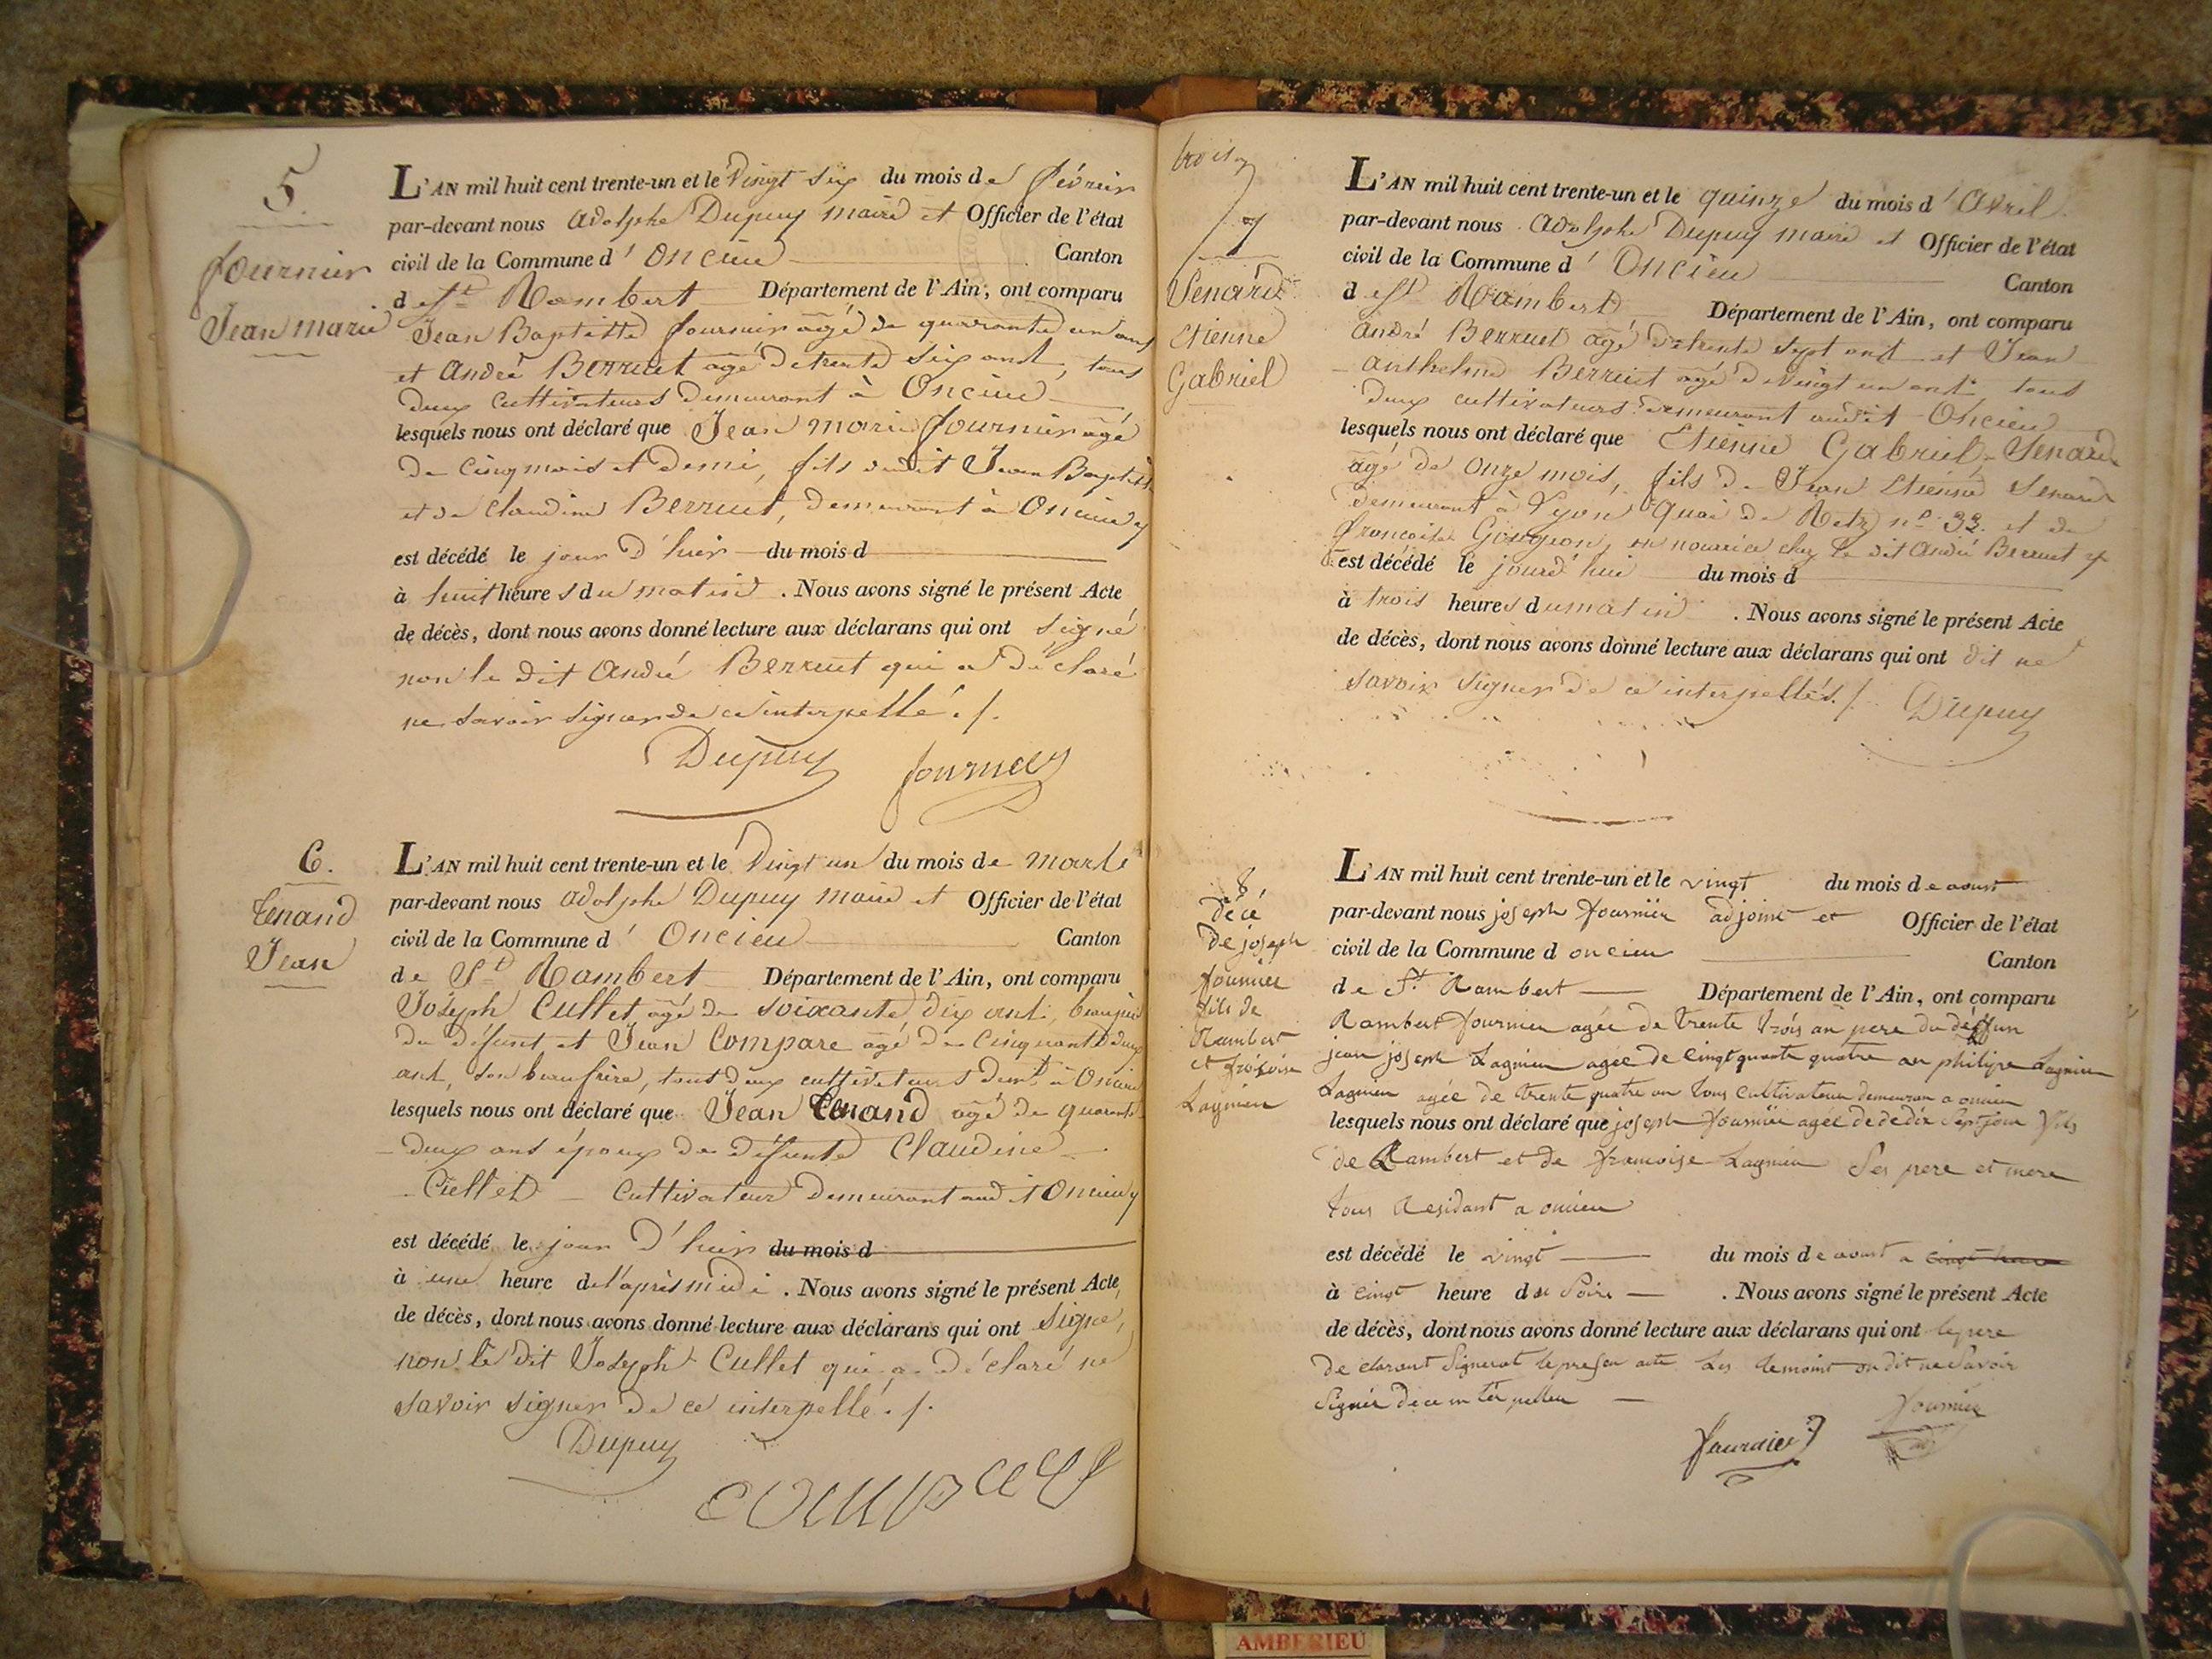 5.
Fournier
Jean marie
L'AN mil huit cent trente-un et le Vingt six du mois de février
par-devant nous Adolphe Dupuy maire et Officier de l'état
civil de la Commune d'Oncieu Canton
de St Rambert Département de l'Ain, ont comparu
Jean Baptiste fournier âgé de quarante un ans
et André Berruet âgé de trente six ans, tous
deux cultivateurs demeurant à Oncieu
lesquels nous ont déclaré que Jean marie fournier âgé
de cinq mois et demi, fils dudit Jean Baptiste
et de Claudine Berruet, demeurant à Oncieu
est décédé le jour d'hier du mois d
à huit heures du matin. Nous avons signé le présent Acte
de décès, dont nous avons donné lecture aux déclarans qui ont signé
non le dit André Berruet qui a déclaré
ne savoir signer de ce interpellé ./.
Dupuy fournier
6.
Tenand
Jean
L'AN mil huit cent trente-un et le Vingt un du mois de mars
par-devant nous Adolphe Dupuy maire et Officier de l'état
civil de la Commune d'Oncieu Canton
de St Rambert Département de l'Ain, ont comparu
Joseph Cullet âgé de soixante dix ans, beaupère
du défunt et Jean Compare âgé de cinquante deux
ans, son beau frère, tous deux cultivateurs demt à Oncieu
lesquels nous ont déclaré que Jean Tenand âgé de quarante
deux ans époux de défunte Claudine
Cullet cultivateur demeurant audit Oncieu
est décédé le jour d'hier du mois d
à une heure de l'après midi. Nous avons signé le présent Acte
de décès, dont nous avons donné lecture aux déclarans qui ont signé,
non le dit Joseph Cullet qui a déclaré ne
savoir signer de ce interpellé ./.
Dupuy
trois
7
Senard
Etienne
Gabriel
L'AN mil huit cent trente-un et le quinze du mois d'Avril
par-devant nous Adolphe Dupuy maire et Officier de l'état
civil de la Commune d'Oncieu Canton
de St Rambert Département de l'Ain, ont comparu
André Berruet âgé de trente sept ans et Jean
Anthelme Berruet âgé de Vingt un ans tous
deux cultivateurs demeurant audit Oncieu
lesquels nous ont déclaré que Etienne Gabriel Senard
âgé de onze mois, fils de Jean Etienne Senard
demeurant à Lyon Quai de Retz no 33. et de
françoise Goujeon, en nourrice chez le dit André Berruet
est décédé le jourd'hui du mois d
à trois heures du matin. Nous avons signé le présent Acte
de décès, dont nous avons donné lecture aux déclarans qui ont dit ne
savoir signer de ce interpellés ./. Dupuy
8,
décé
de joseph
fournier
fils de
Rambert
et
Lagnieu
L'AN mil huit cent trente-un et le vingt du mois de aoust
par-devant nous joseph fournier adjoint et Officier de l'état
civil de la Commune d oncieu Canton
de St. Rambert Département de l'Ain, ont comparu
Rambert fournier agée de trente trois an pere du deffun
jean joseph Lagnieu agée de cingtquante quatre an philipe Lagnieu
Lagnieu agée de trente quatre an tous cultivateur demeuran a oncieu
lesquels nous ont déclaré que joseph fournier agée de de dix sept jour fils
de Rambert et de francoise Lagnieu Ses pere et mere
tous Residant a oncieu
est décédé le vingt du mois de aoust a cingt heure
à cingt heure du Soire. Nous avons signé le présent Acte
de décès, dont nous avons donné lecture aux déclarans qui ont le pere
declarant Signerat le presen acte Les temoint on dit ne Savoir
Signér de ce
fournier fournier
AMBERIEU